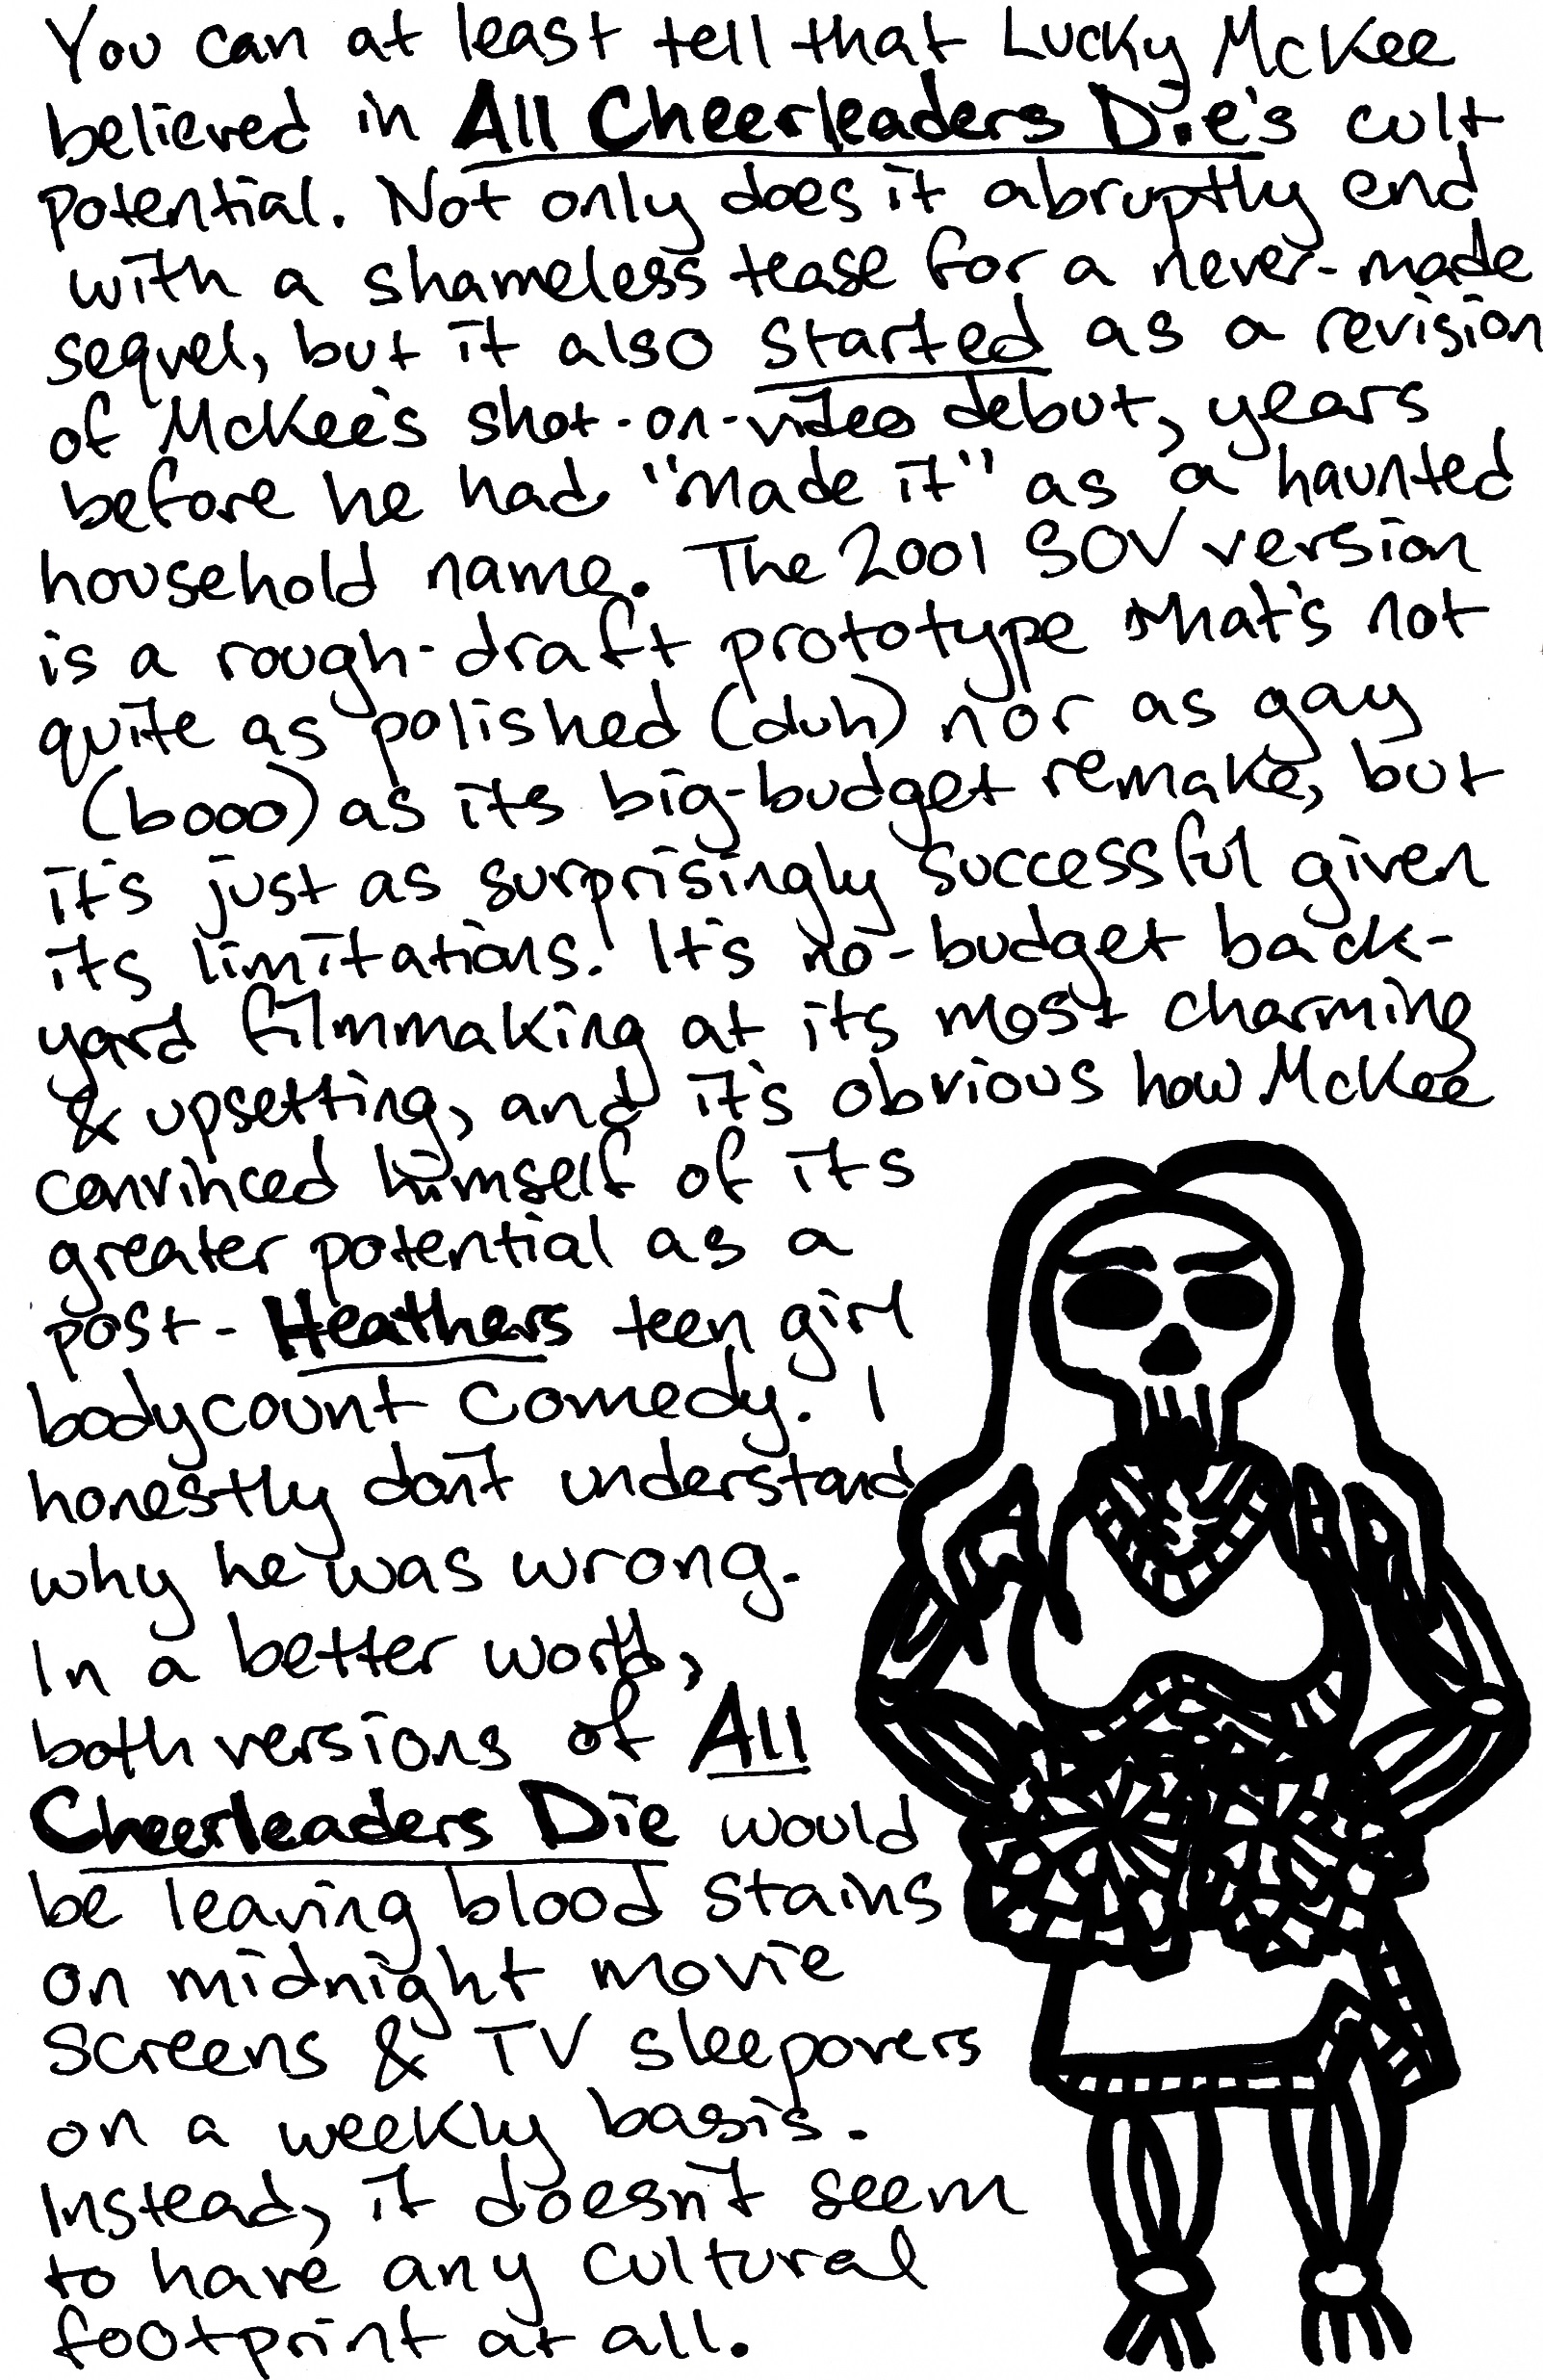 You can at least tell that Lucky McKee
believed in All Cheerleaders Die's cult
potential. Not only does it abruptly end
with a shameless tease for a never-made
sequel, but it also started as a revision
of McKee's shot-on-video debut, years
before he had "made it" as a haunted
household name. The 2001 SOV version
is a rough-draft prototype that's not
quite as polished (duh) nor as gay
(booo) as its big-budget remake, but
it's just as surprisingly successful given
its limitations. It's no-budget back-
yard filmmaking at its most charming
& upsetting, and it's obvious how McKee
convinced himself of its
greater potential as a
post-Heathers teen girl
bodycount comedy. I
honestly don't understand
why he was wrong.
In a better world,
both versions of All
Cheerleaders Die would
be leaving blood stains
on midnight movie
screens & TV sleepovers
on a weekly basis.
Instead, it doesn't seem
to have any cultural
footprint at all.